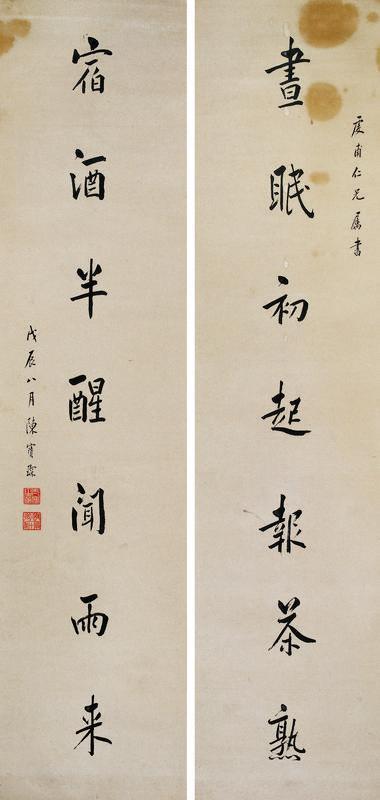 甫仁兄属書
晝眠初起報茶熟
宿酒半醒聞雨来
戊辰八月陳寶琛